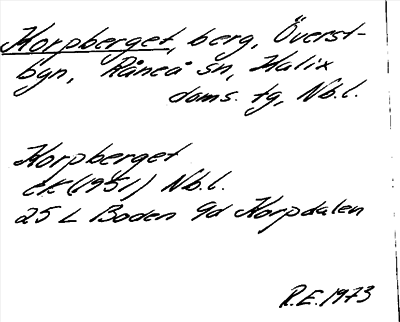 Korpberget, berg, Överst-
bgn, Råneå sn, Kalix
doms. tg, Nb.l.
Korpberget
EK(1951) Nb.l.
25 L Boden 9d Korpdalen
R.E. 1973